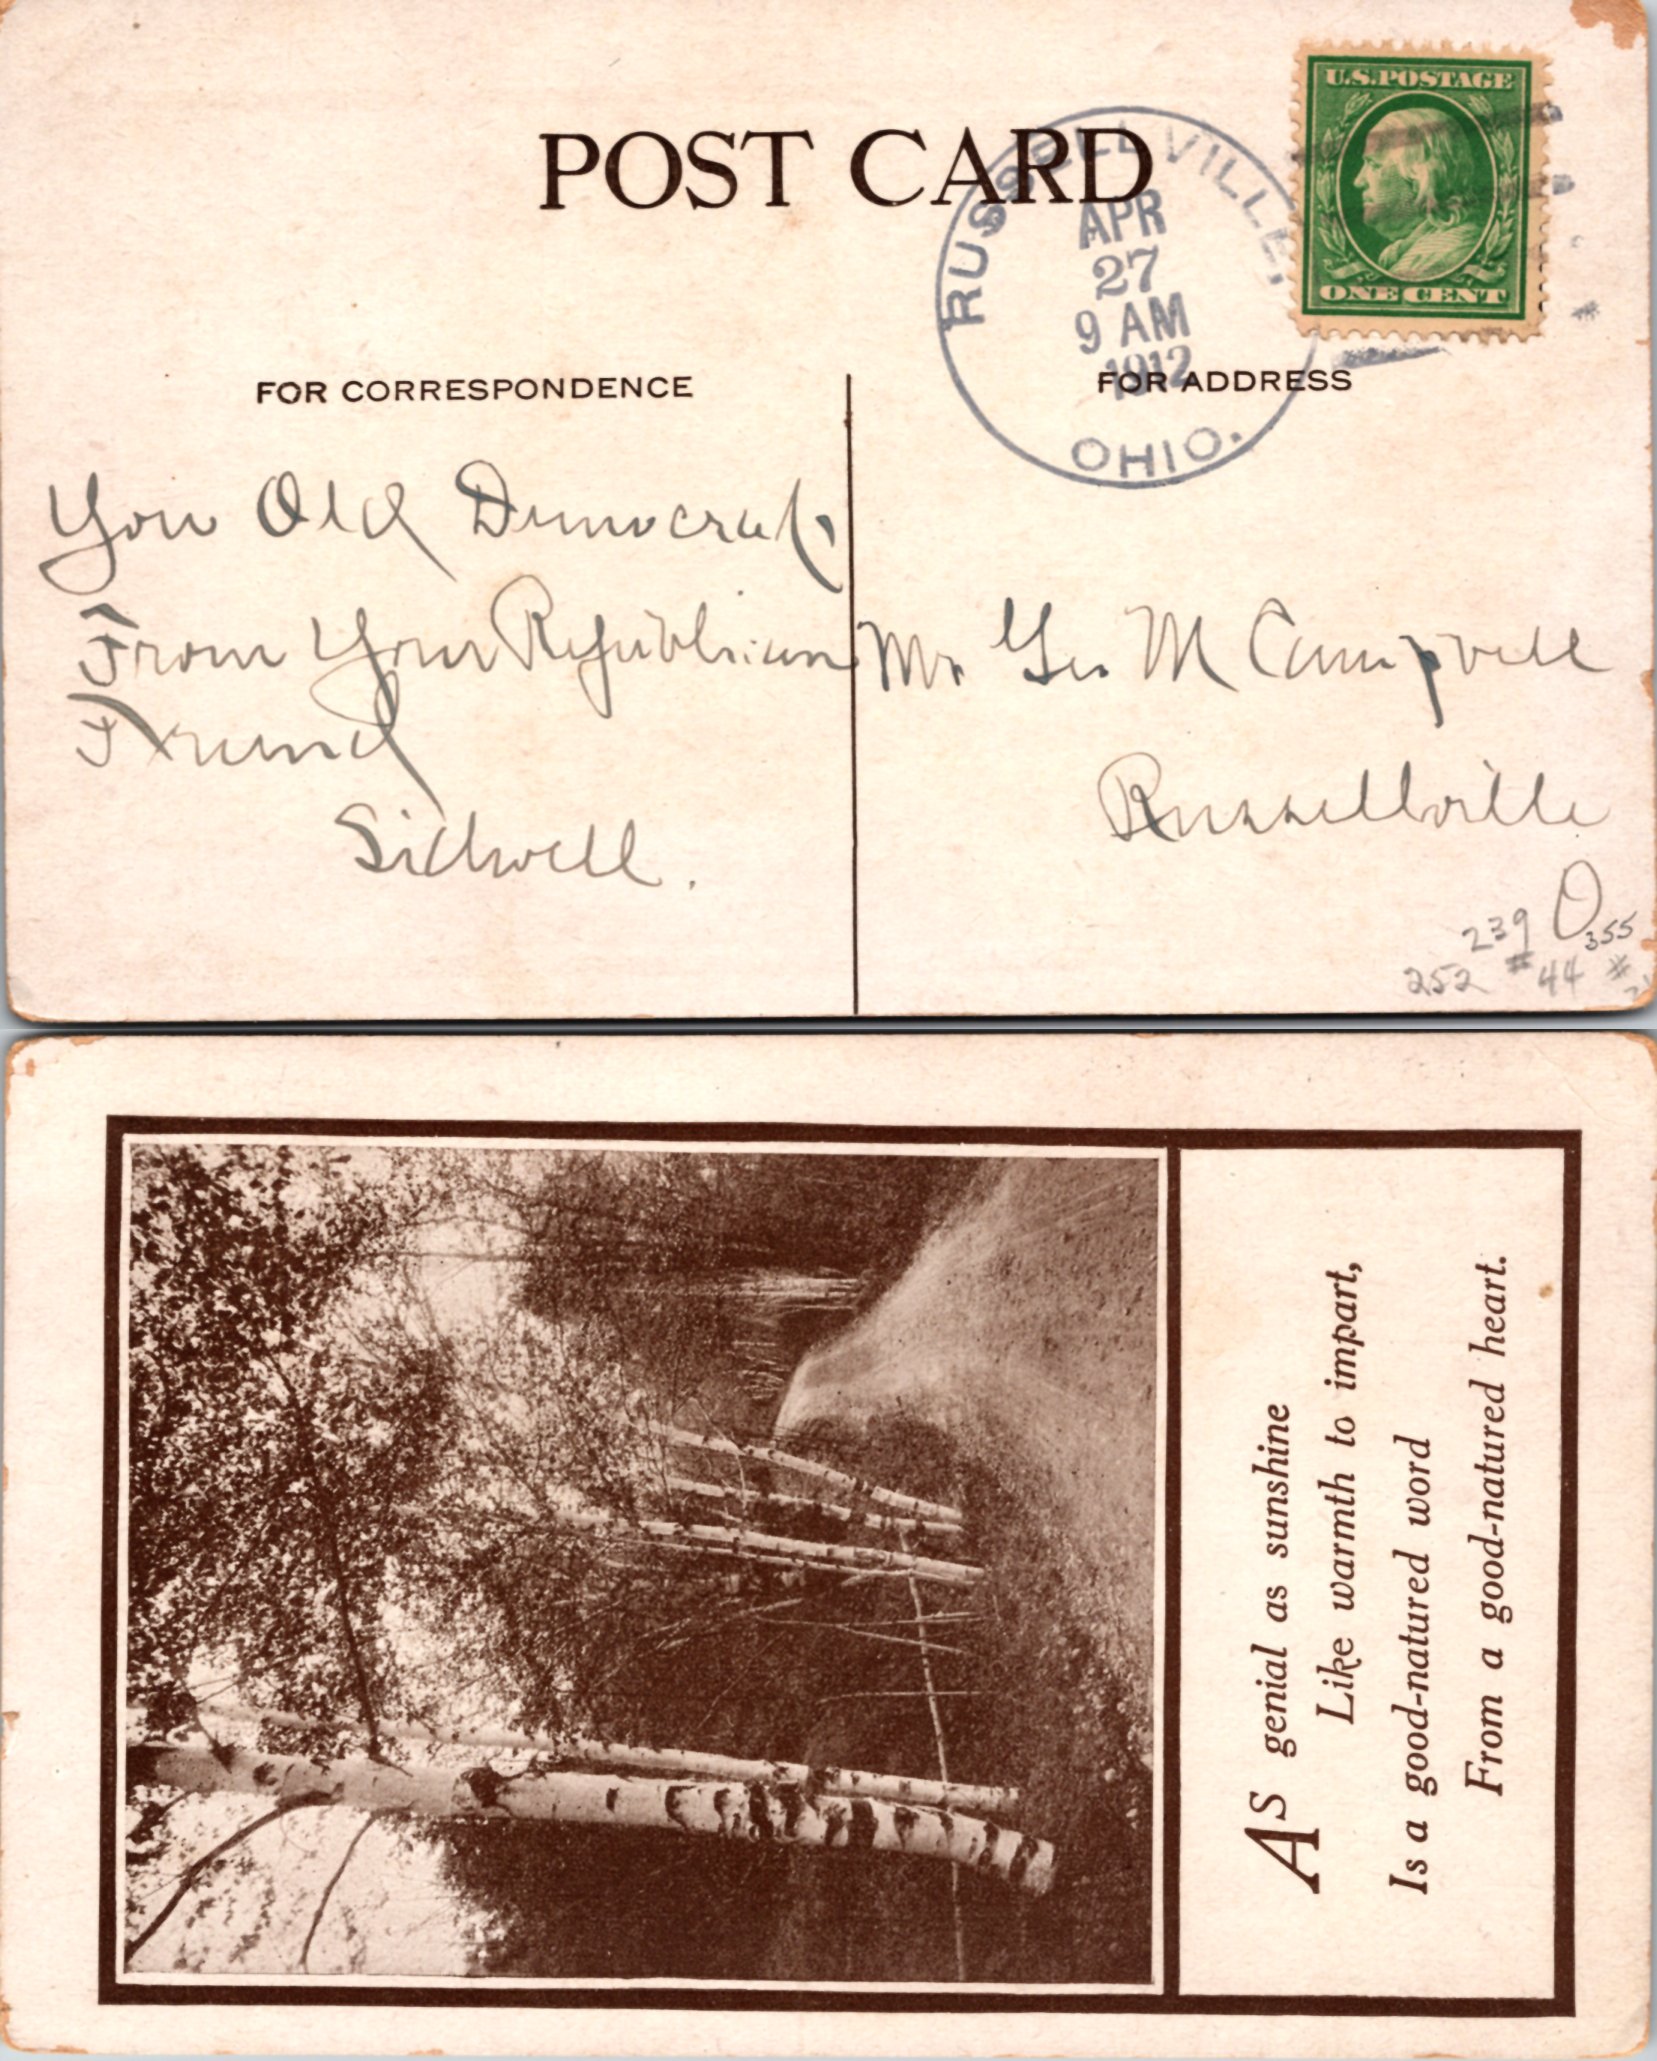 POST CARD
U.S. POSTAGE
ONE CENT
RUSSELLVILLE,
APR
27
9 AM
1912
OHIO.
FOR CORRESPONDENCE
FOR ADDRESS
You Old Democrat
From Your Republican
Friend
Sidwell.
Mr Geo M Campbell
Russellville
O
239
355
252 #44 #
AS genial as sunshine
Like warmth to impart,
Is a good-natured word
From a good-natured heart.